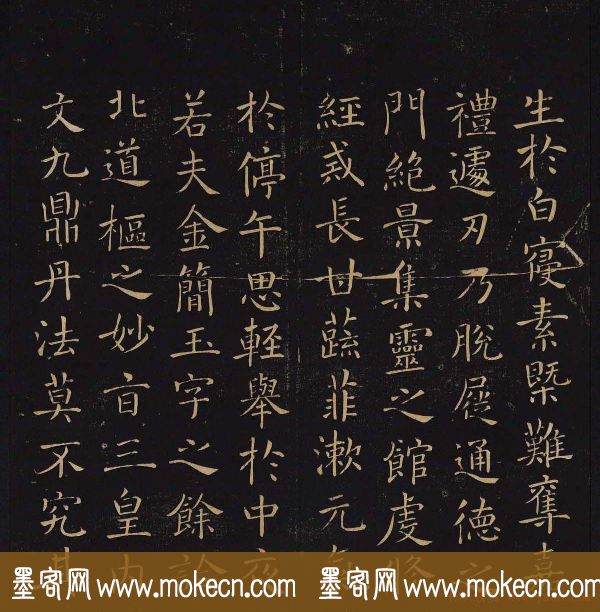 生於白寑素槩難奪喜
禮遽刃乃脫屣通德之
門絕景集靈之館虔
經戒長甘蔬菲漱元氣
於停午思輕舉於中夜
若夫金簡玉字之餘訣
北道樞之妙盲三皇內
文九鼎丹法莫不究
墨客网 www.mokecn.com 墨客网 www.mokecn.com